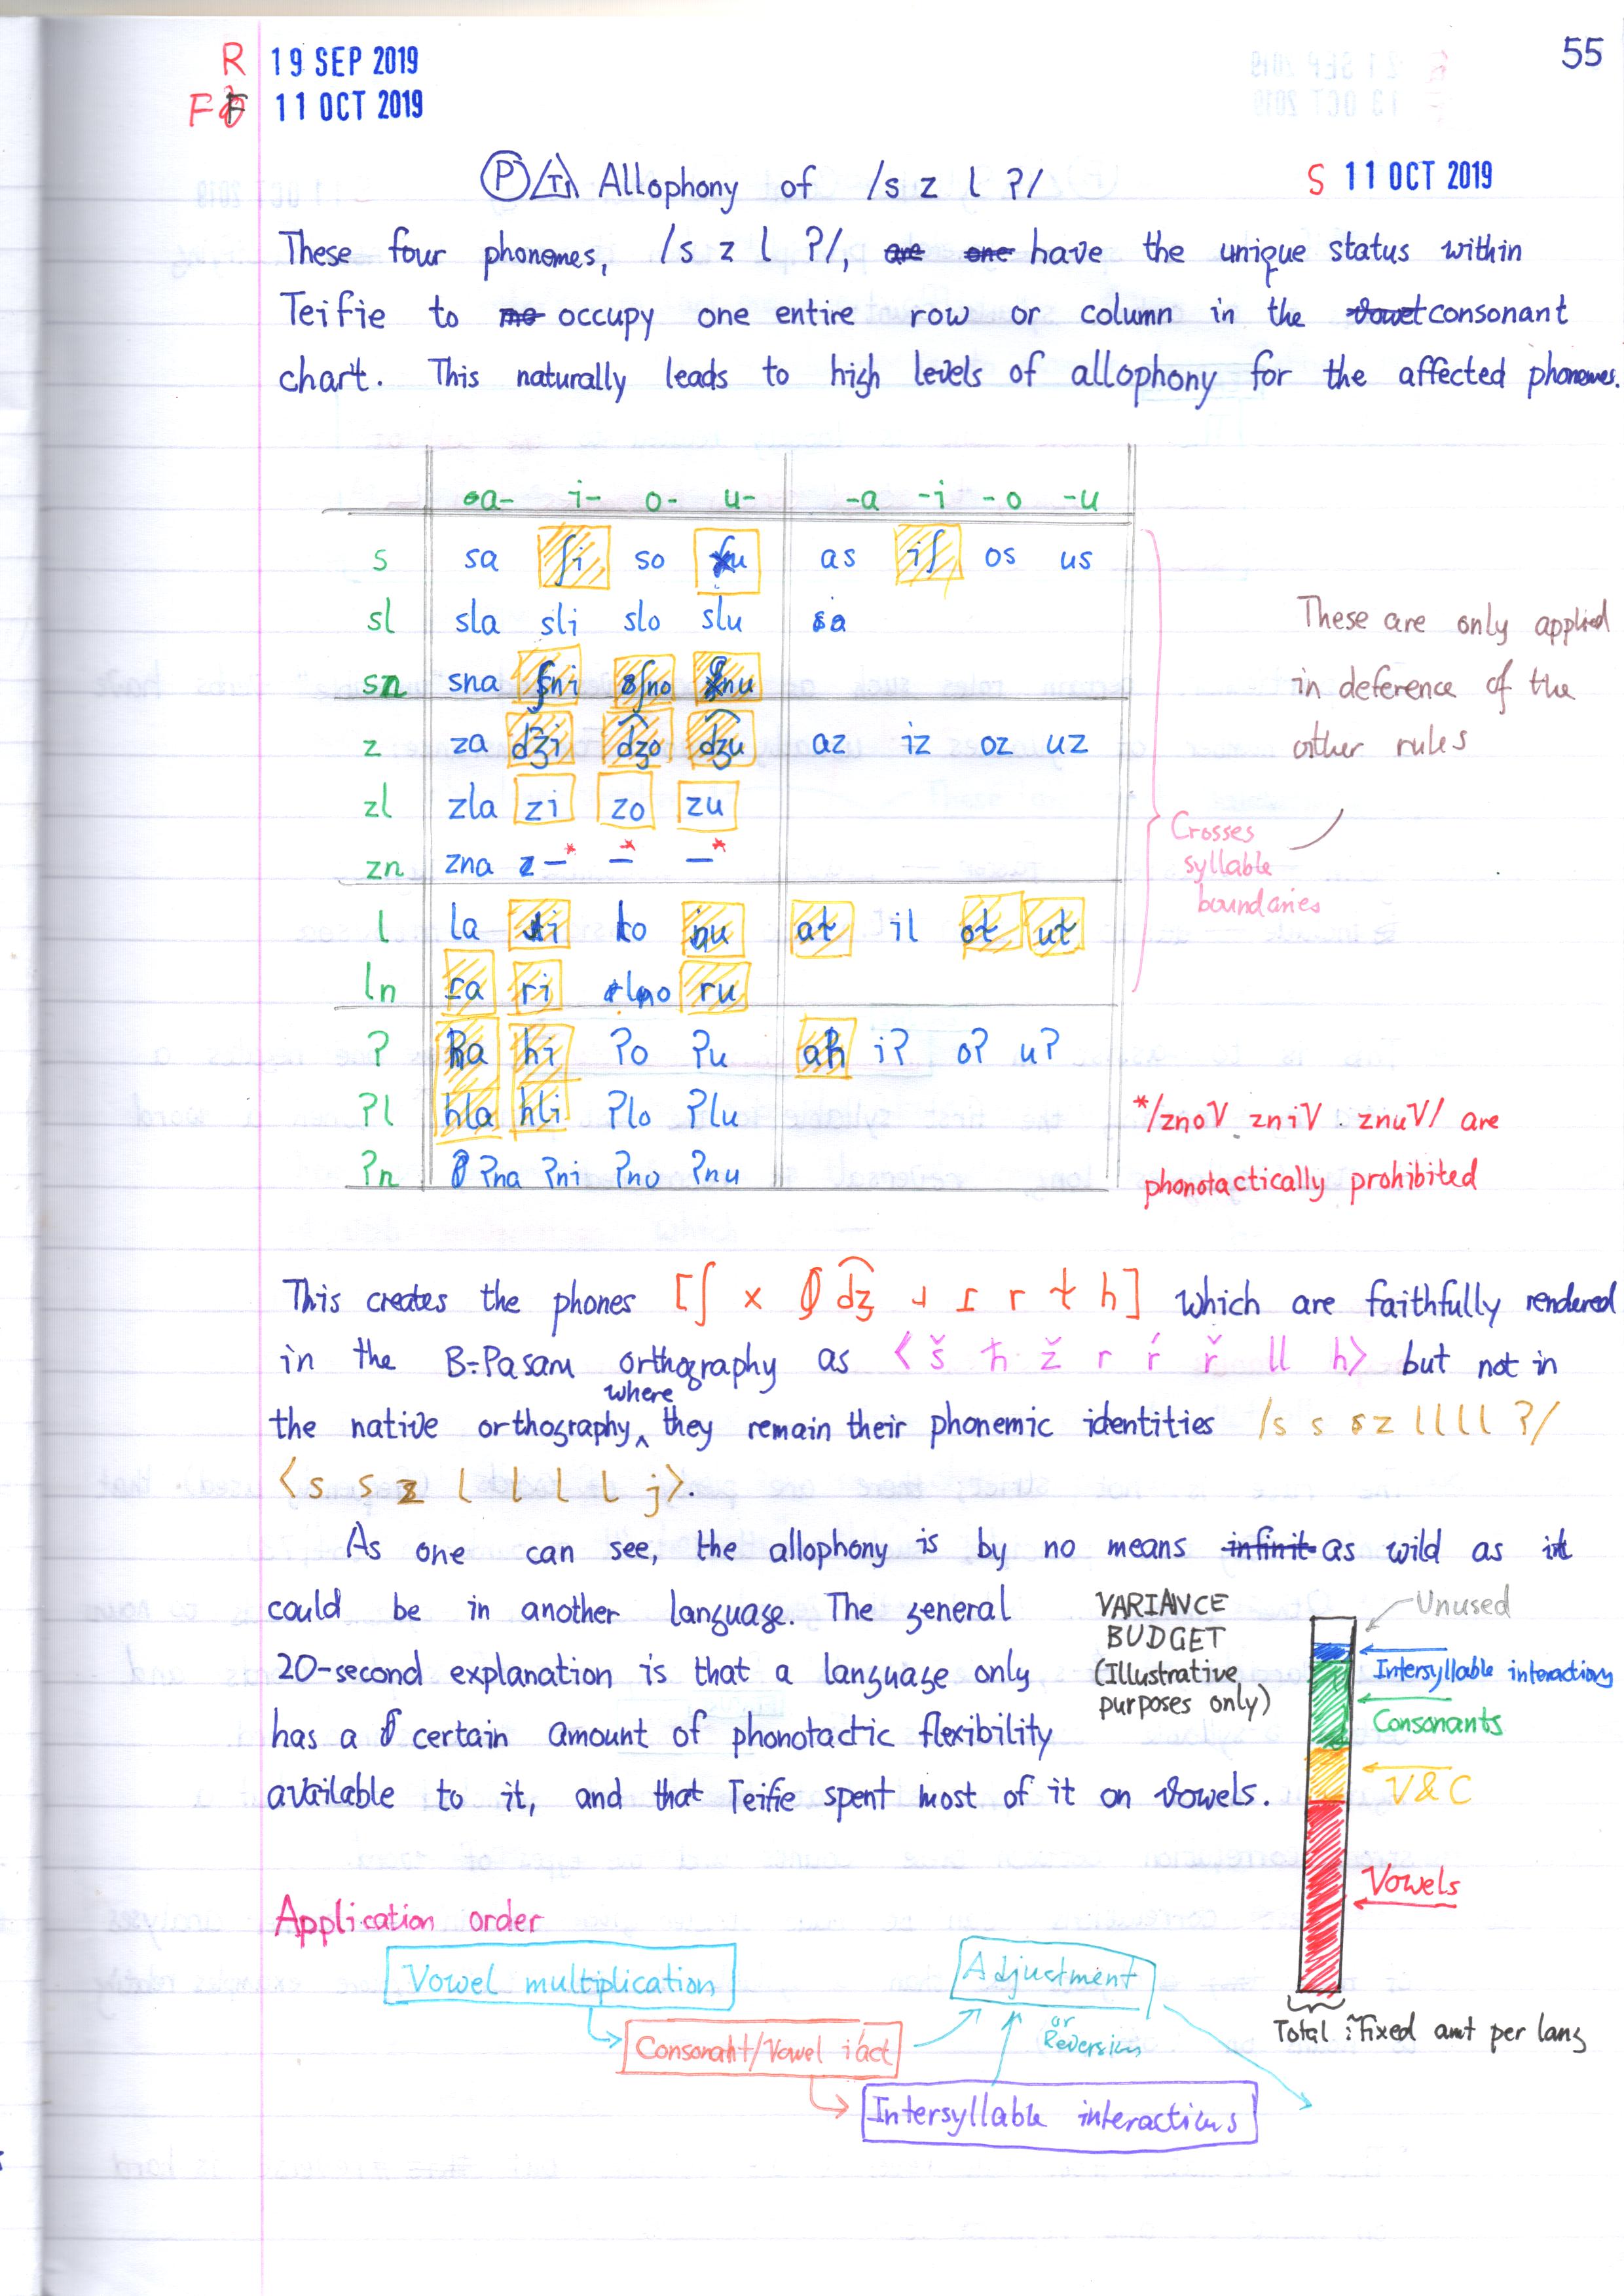 55
R 19 SEP 2019
F 11 OCT 2019
Ⓟ Allophony of /s z l ʔ/
S 11 OCT 2019
These four phonemes, /s z l ʔ/, are one have the unique status within
Teifie to me occupy one entire row or column in the vowel consonant
chart. This naturally leads to high levels of allophony for the affected phonemes.
a- i- o- u- -a -i -o -u
s sa ʃi so u as iʃ os us
sl sla sli slo slu sa
sn sna ʃni ʃno nu
z za d͡ʒi d͡ʒo d͡ʒu az iz oz uz
zl zla zi zo zu
zn zna –* –* –*
l la lo ɹu aɫ il oɫ uɫ
ln ɾa ri lno ru
ʔ ħa hi ʔo ʔu aħ iʔ oʔ uʔ
ʔl hla hli ʔlo ʔlu
ʔn ʔna ʔni ʔno ʔnu
These are only applied
in deference of the
other rules
Crosses
syllable
boundaries
*/znoV zniV znuV/ are
phonotactically prohibited
This creates the phones [ʃ x d͡ʒ ɹ ɾ r ɫ h] which are faithfully rendered
in the B-Pasam orthography as ⟨š ħ ž r ŕ ř ll h⟩ but not in
the native orthography where they remain their phonemic identities /s s z l l l l ʔ/
⟨s s z l l l l j⟩.
As one can see, the allophony is by no means infinit as wild as it
could be in another language. The general
20-second explanation is that a language only
has a certain amount of phonotactic flexibility
available to it, and that Teifie spent most of it on vowels.
VARIANCE
BUDGET
(Illustrative
purposes only)
Unused
Intersyllable interactions
Consonants
V & C
Vowels
Total: Fixed amt per lang
Application order
Vowel multiplication
Consonant/Vowel i'act
Adjustment
or
Reversion
Intersyllable interactions